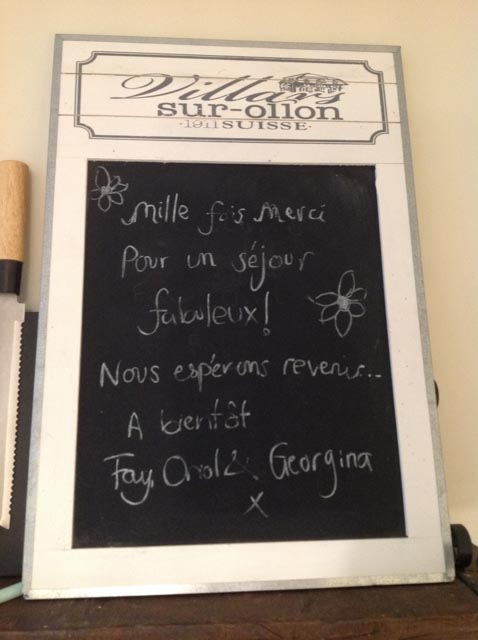 Villars
sur-ollon
·1911 SUISSE·
Mille fois Merci
Pour un séjour
fabuleux!
Nous espérons revenir...
A bientôt
Fay, & Georgina
X